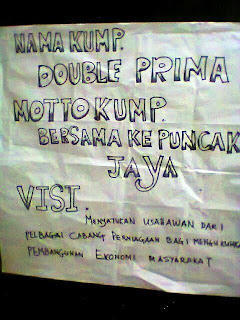 NAMA KUMP.
DOUBLE PRIMA
MOTTO KUMP.
BERSAMA KE PUNCAK
JAYA
VISI.
MENYATUKAN USAHAWAN DARI
PELBAGAI CABANG PERNIAGAAN BAGI MENGUKUHKAN
PEMBANGUNAN EKONOMI MASYARAKAT